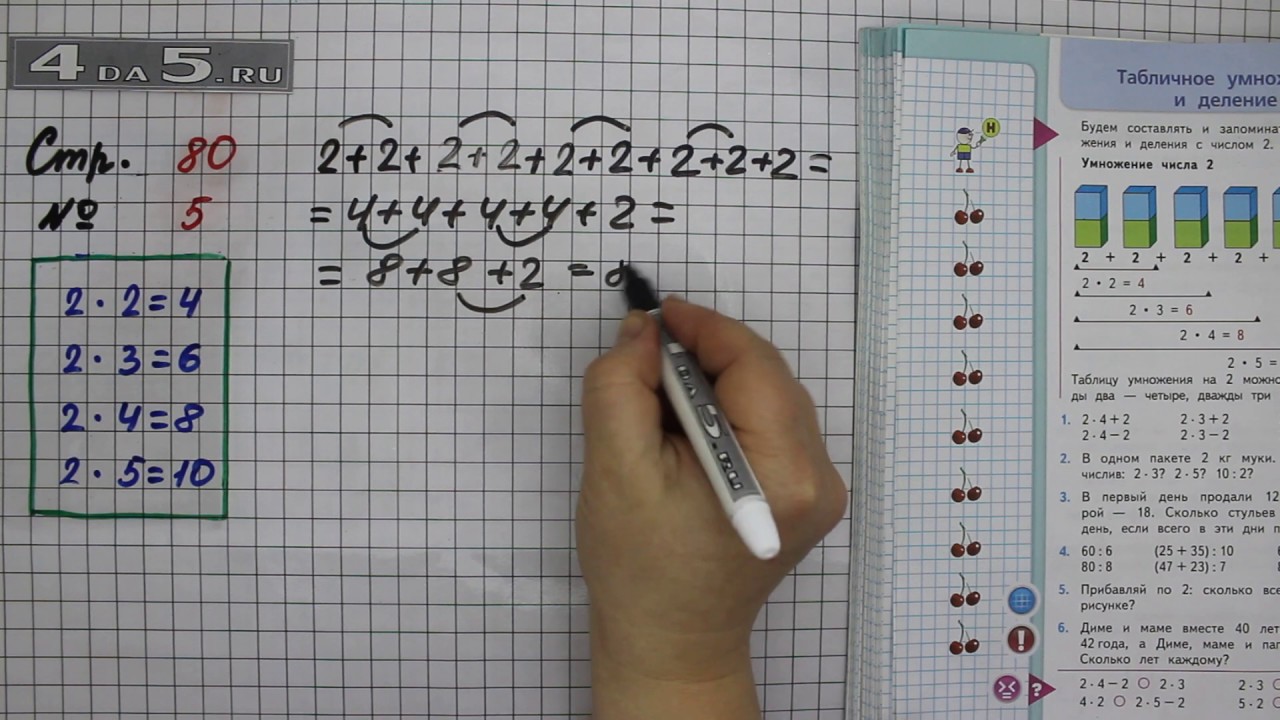 4DA5.RU
Стр. 80
№ 5
2+2+2+2+2+2+2+2+2=
=4+4+4+4+2=
=8+8+2=8
2·2=4
2·3=6
2·4=8
2·5=10
DA 5.RU
Н
Табличное умнож
и деление
Будем составлять и запомина
жения и деления с числом 2.
Умножение числа 2
2 + 2 + 2 + 2 +
2 · 2 = 4
2 · 3 = 6
2 · 4 = 8
2 · 5 =
Таблицу умножения на 2 можно
ды два — четыре, дважды три
1. 2·4+2 2·3+2
2·4−2 2·3−2
2. В одном пакете 2 кг муки.
числив: 2·3? 2·5? 10:2?
3. В первый день продали 12
рой — 18. Сколько стульев
день, если всего в эти дни п
4. 60:6 (25+35):10
80:8 (47+23):7
5. Прибавляй по 2: сколько все
рисунке?
6. Диме и маме вместе 40 лет
42 года, а Диме, маме и пап
Сколько лет каждому?
!
?
2·4−2 ○ 2·3 2·3
4·2 ○ 2·5−2 5·2